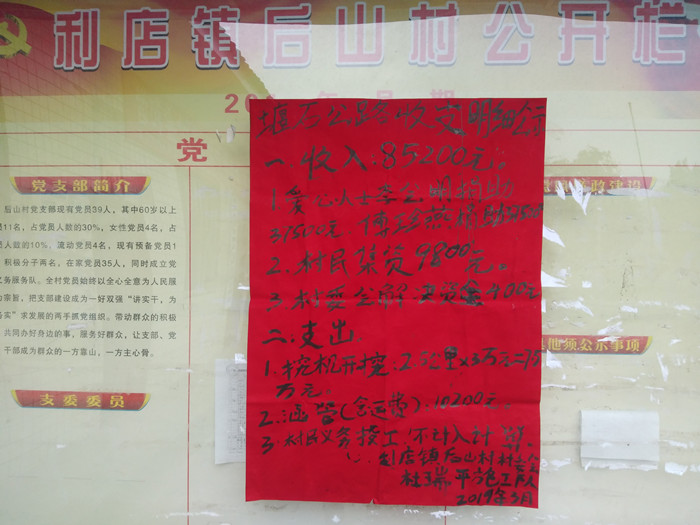 利店镇后山村公开栏
党
党支部简介
后山村党支部现有党员39人，其中60岁以上
员11名，占党员人数的30%，女性党员4名，占
员人数的10%，流动党员4名，现有预备党员1
积极分子两名，在家党员35人，同时成立党
义务服务队。全村党员始终以全心全意为人民服
为宗旨，把支部建设成为一好双强“讲实干，为
务实”求发展的两手抓党组织。带动群众的积极
共同办好身边的事，服务好群众，让支部、党
干部成为群众的一方靠山，一方主心骨。
支委委员
公路收支明细公示
一、收入:85200元。
1.爱心人士李公明捐助
37500元，傅珍燕捐助
2.村民集资9800元。
3.村委会解决资金400元
二.支出
1.挖机开挖:2.5公里×3万元=7.5
万元。
2.涵管(含运费):10200元。
3.村民义务投工,不计入计算。
利店镇后山村村委会
杜瑞平
2019年5月
政建设
其他须公示事项